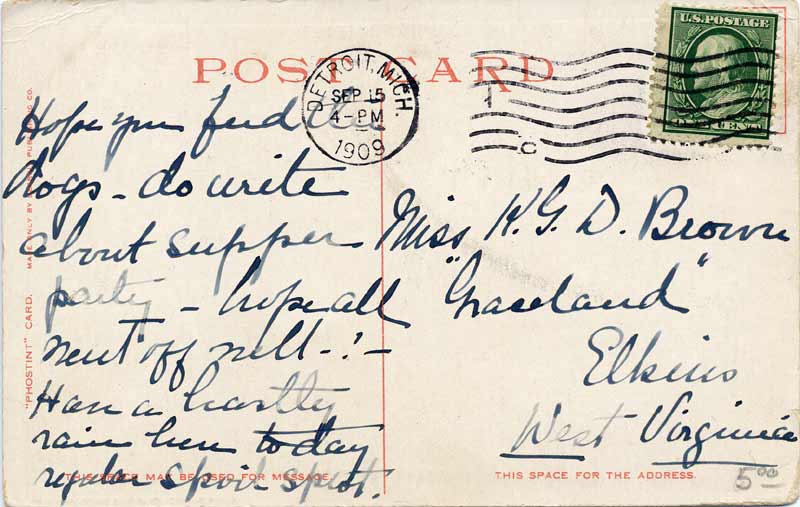 U.S. POSTAGE
POST CARD
DETROIT, MICH.
SEP 15
4-PM
1909
1
C
Hope you find
dogs - do write
about supper
party - hope all
went off well - ! -
Have a beastly
rain here today
regular spoil sport.
Miss K. G. D. Brown
"Graceland"
Elkins
West Virginia
"PHOSTINT" CARD. MADE ONLY BY PUBLISHING CO.
THIS SPACE MAY BE USED FOR MESSAGE.
THIS SPACE FOR THE ADDRESS.
5.00